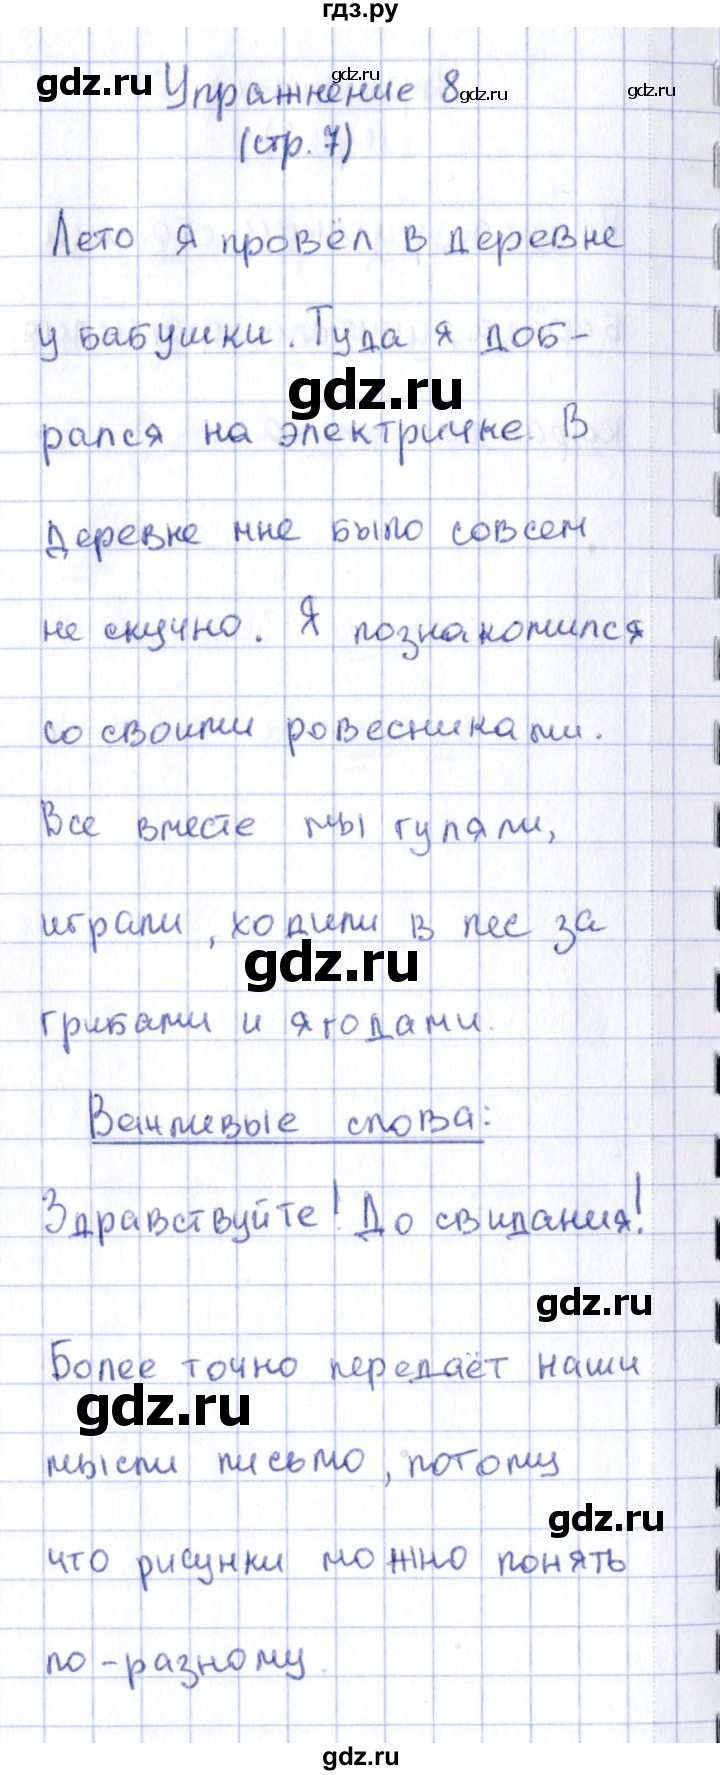 гдз.ру
gdz.ru Упражнение 8 gdz.ru gdz.ru gdz.ru
(стр. 7)
Лето я провёл в деревне
у бабушки. Туда я доб-
gdz.ru
рался на электричке. В
деревне мне было совсем
не скучно. Я познакомился
со своими ровесниками.
Все вместе мы гуляли,
играли, ходили в лес за
gdz.ru
грибами и ягодами.
Вежливые слова:
Здравствуйте! До свидания!
gdz.ru
Более точно передаёт наши
gdz.ru
мысли письмо, потому
gdz.ru
что рисунки можно понять
по-разному.
gdz.ru